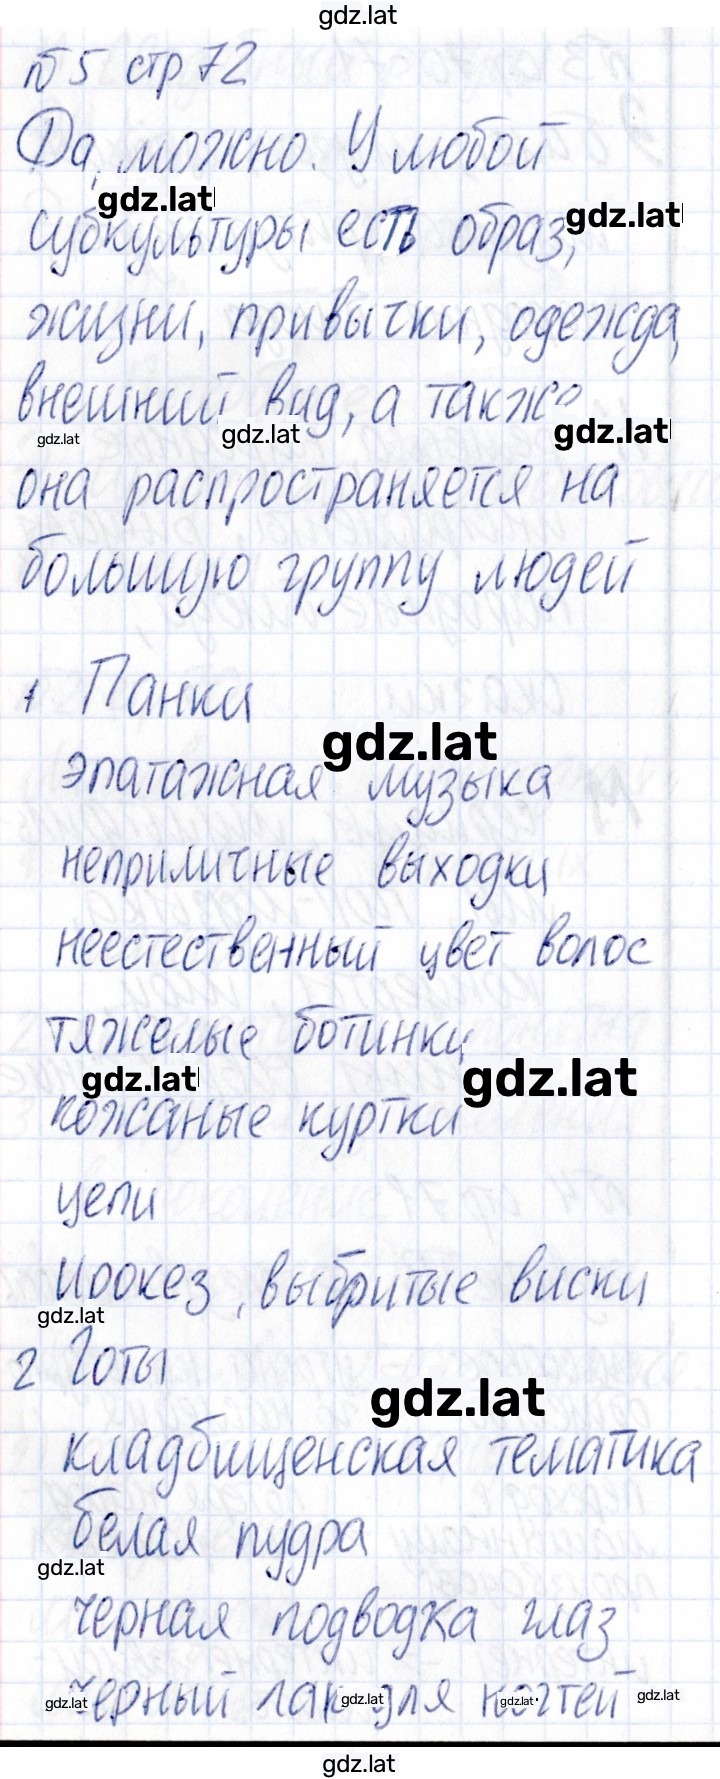 gdz.lat
№5 стр 72
Да, можно. У любой
gdz.lat gdz.lat
субкультуры есть образ,
жизни, привычки, одежда,
внешний вид, а также
gdz.lat gdz.lat gdz.lat
она распространяется на
большую группу людей
1 Панки
gdz.lat
эпатажная музыка
неприличные выходки
неестественный цвет волос
тяжелые ботинки
gdz.lat gdz.lat
кожаные куртки
цепи
ирокез, выбритые виски
gdz.lat
2 Готы
gdz.lat
кладбищенская тематика
белая пудра
gdz.lat
черная подводка глаз
черный лак для ногтей
gdz.lat gdz.lat gdz.lat gdz.lat
gdz.lat